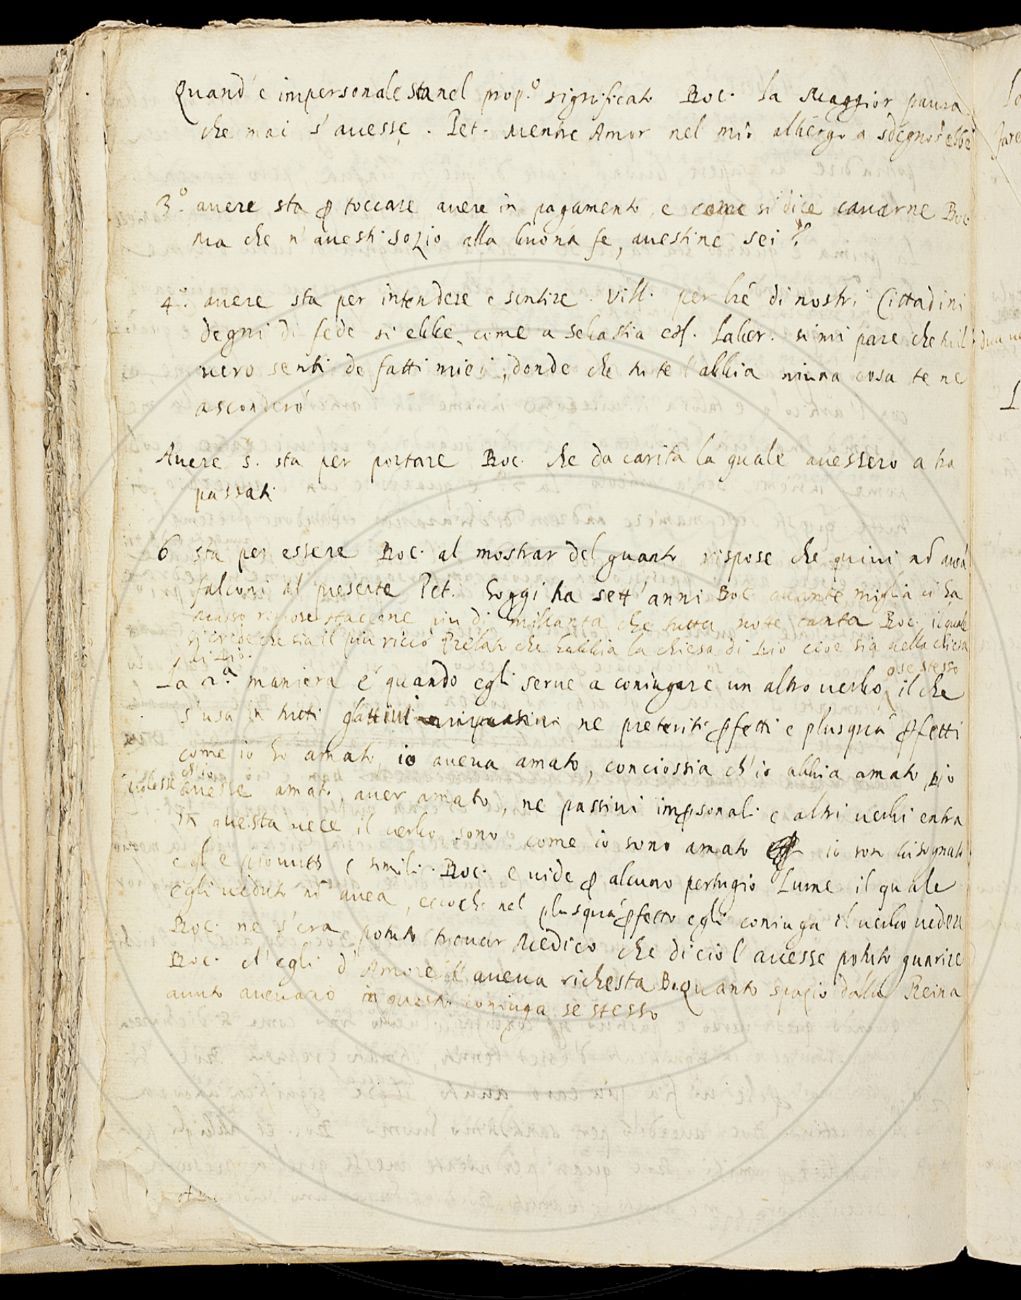 Quand'è impersonale sta nel prop.o significato Boc. la Maggior paura
che mai s'avesse. Pet. Mentre Amor nel mio albergo a sdegno s'ebbe
3.o avere sta p toccare avere in pagamento, e come si dice cavarne Boc
Ma che n'avesti sozio alla buona fe, avestine sei
4.o avere sta per intendere e sentire. Vill. per lrè di nostri Cittadini
degni di fede si ebbe, come a Sebastia
vero senti de fatti miei, donde che tu te l'abbia niuna cosa te ne
asconderò
Avere 5. sta per portare Boc. che da carità la quale avessero a ha
passati
6 sta per essere Boc. al mostrar del guanto rispose che quivi nõ avea
falconi al presente Pet. hoggi ha sett'anni Boc quante miglia ci ha
rispose più di millanta che tutta notte canta Boc. il quale
si crede che sia il più ricco Prelato che habbia la chiesa di Dio cioè sia nella chiesa
di Dio.
La 2.a maniera è quando egli serve a coniugare un altro verbo, o se stesso il che
s'usa in tutti gl'attivi ne preteriti pfetti e plusquã pfetti
come io ho amato, io aveva amato, conciossia ch'io abbia amato,
avesse amato, aver amato, ne passivi impsonali e altri verbi entra
in questa vece il verbo sono come io sono amato io son bisognato
egl'è piovuto e simili. Boc. e vide p alcuno pertugio Lume il quale
egli veduto nõ avea, ecco che nel plusquã pfetto egli coniuga il verbo vedere
Boc. ne s'era potuto trovar Medico che di ciò l'avesse potuto guarire
Boc. ch'egli d'Amore l'aveva richesta Bo. Quanto spazio dalla Reina
avuto aveano in questo coniuga se stesso